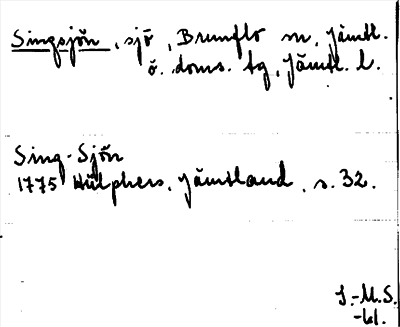 Singsjön, sjö, Brunflo sn, Jämtl.
ö. doms. tg, Jämtl. l.
Sing-Sjön
1775 Hülphers, Jämtland, s. 32.
J.-M.S.
-61.